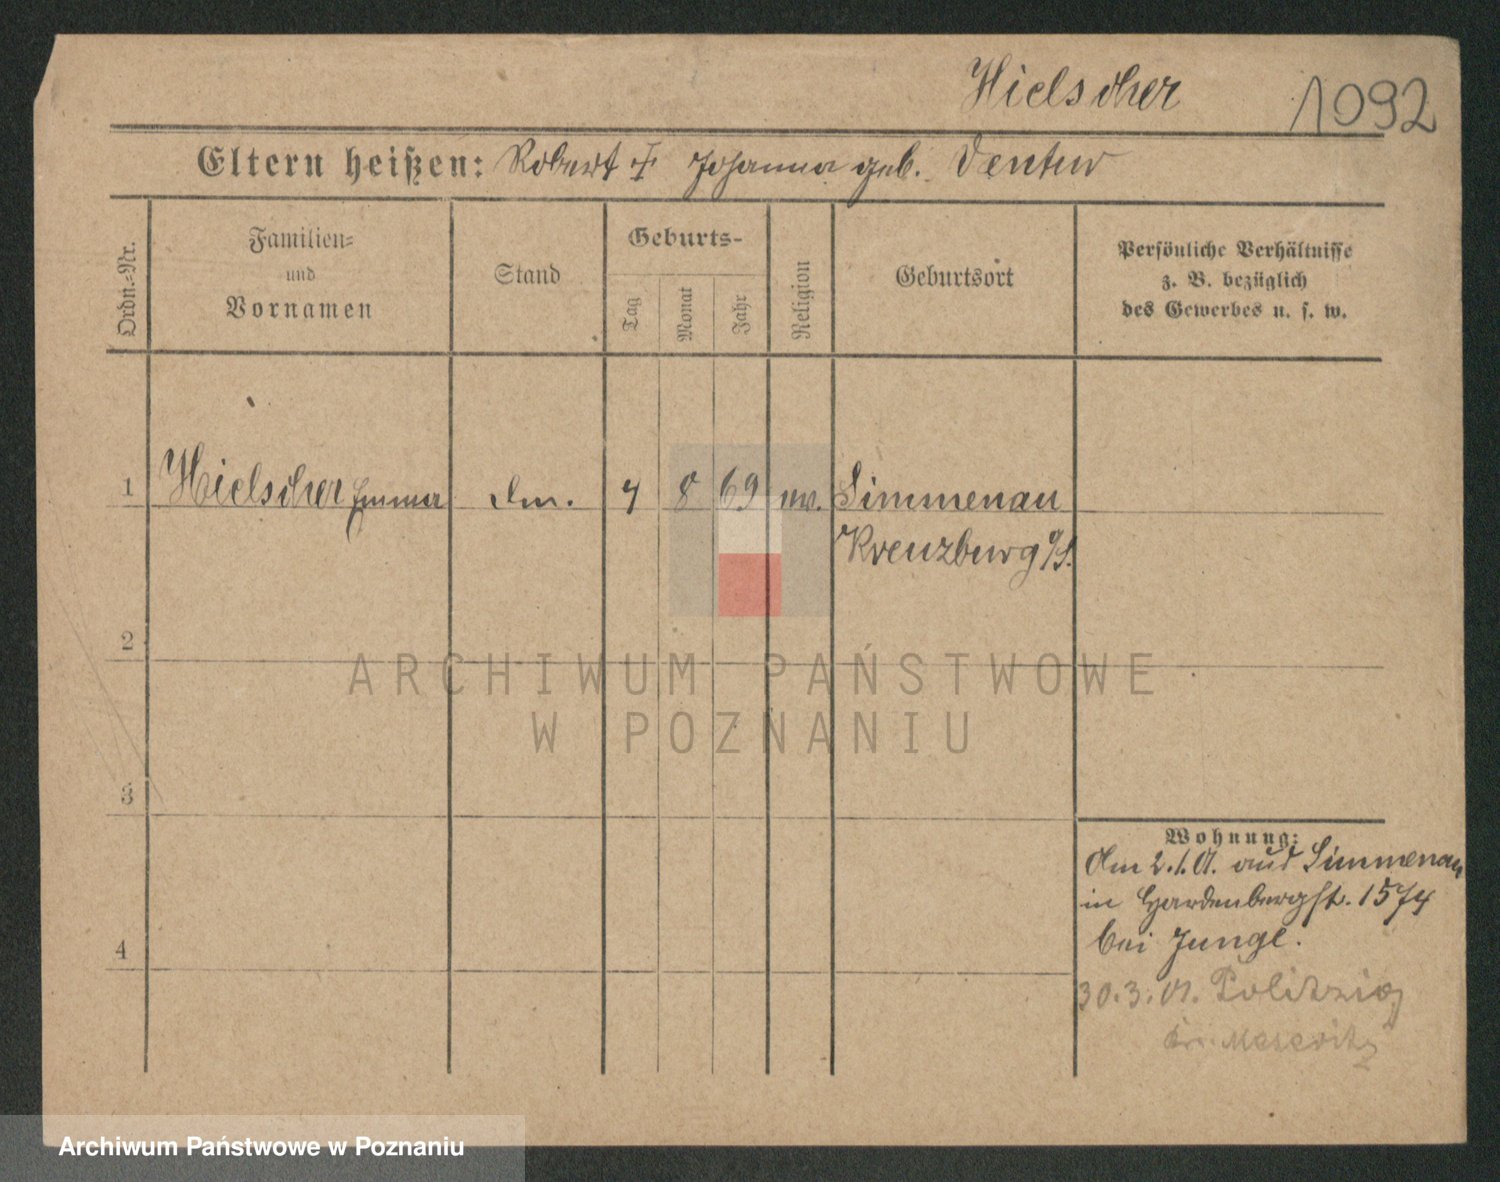 Hielscher 1092
Eltern heißen: Robert † Johanna geb. Ventur
Ordn.-Nr.
Familien-
und
Vornamen
Stand
Geburts-
Tag
Monat
Jahr
Religion
Geburtsort
Persönliche Verhältnisse
z. B. bezüglich
des Gewerbes u. s. w.
1 Hielscher Emma 8 69 Simmenau
Kreuzburg o/S.
2
3
4
Wohnung:
Am 2.1.01. aus Simmenau
in Hardenbergst.
bei Junge.
30.3.01. Politzig
Kr. Meseritz
ARCHIWUM PAŃSTWOWE
W POZNANIU
Archiwum Państwowe w Poznaniu